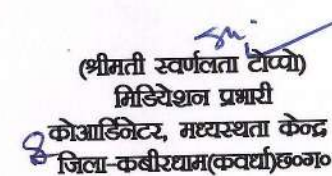 (श्रीमती स्वर्णलता टोप्पो)
मिडियेशन प्रभारी
कोआर्डिनेटर, मध्यस्थता केन्द्र
जिला-कबीरधाम(कवर्धा)छ०ग०